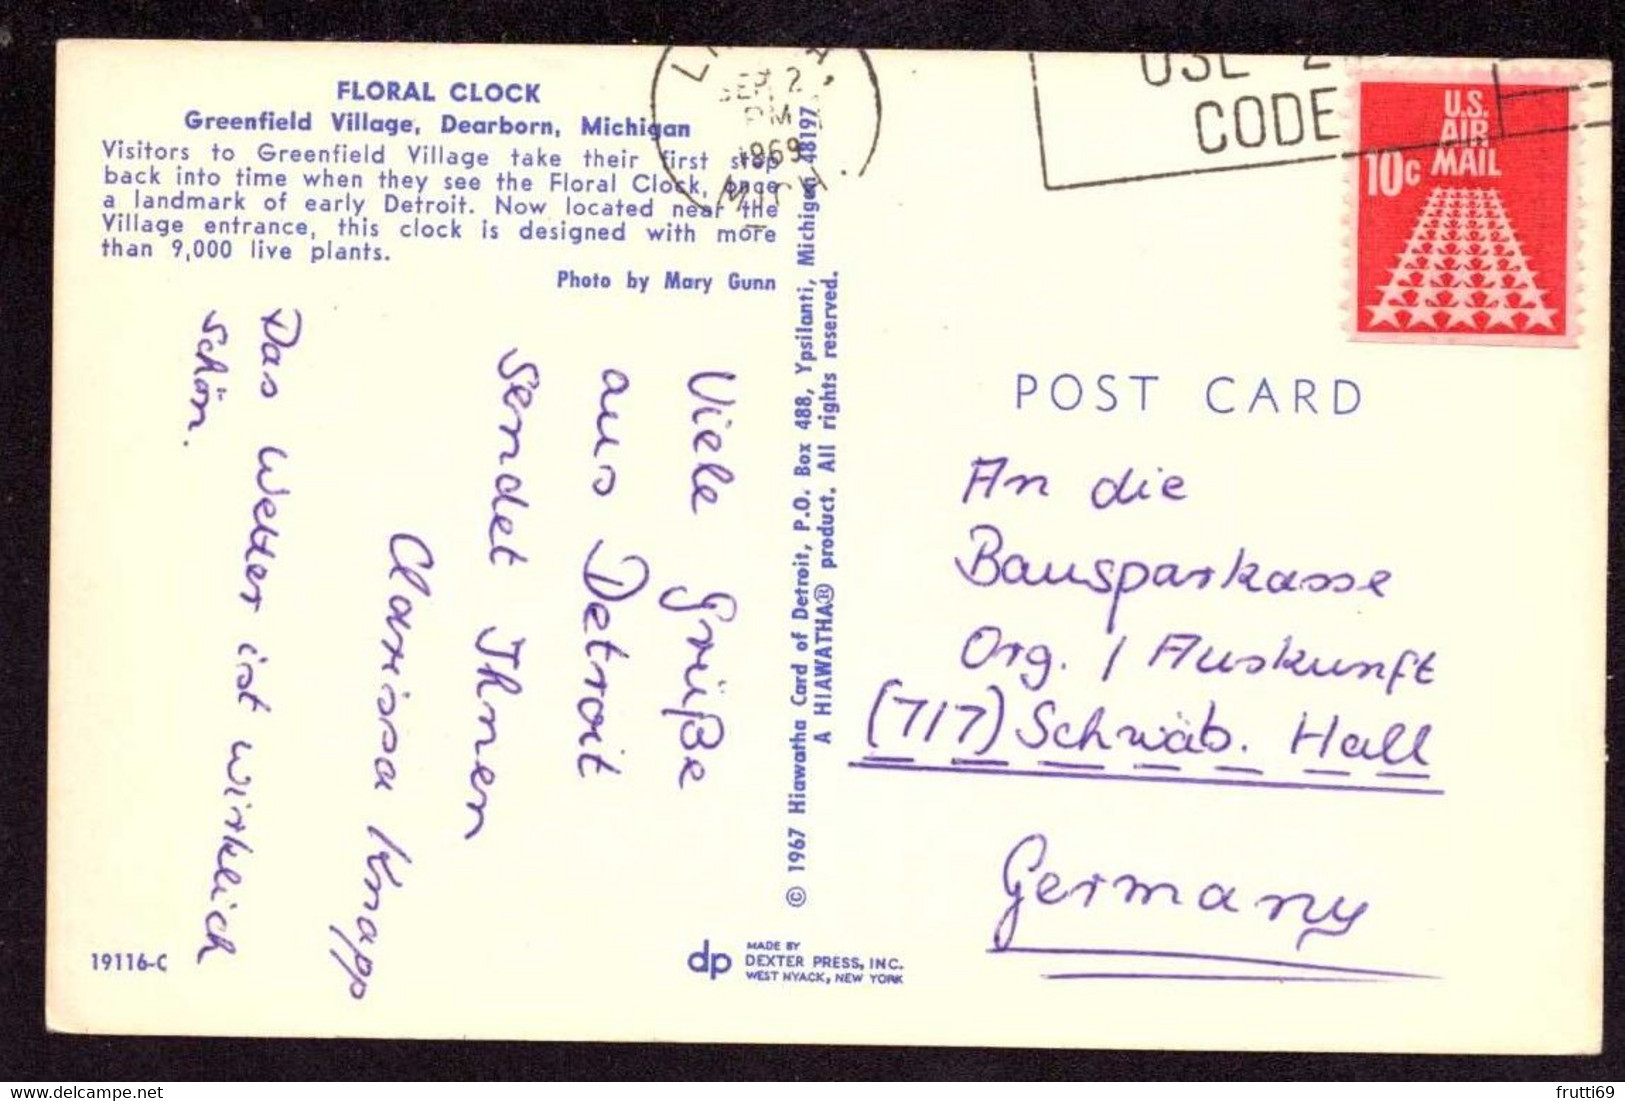 FLORAL CLOCK
Greenfield Village, Dearborn, Michigan
Visitors to Greenfield Village take their first stop
back into time when they see the Floral Clock, once
a landmark of early Detroit. Now located near the
Village entrance, this clock is designed with more
than 9,000 live plants.
Photo by Mary Gunn
Viele Grüße
aus Detroit
sendet Ihnen
Clarissa Knapp
Das Wetter ist wirklich
schön.
19116-C
© 1967 Hiawatha Card of Detroit, P.O. Box 488, Ypsilanti, Michigan 48197
A HIAWATHA® product. All rights reserved.
dp
MADE BY
DEXTER PRESS, INC.
WEST NYACK, NEW YORK
SEP 2
PM
1969
MICH.
USE
CODE
U.S.
AIR
MAIL
10c
POST CARD
An die
Bausparkasse
Org. / Auskunft
(717) Schwäb. Hall
Germany
frutti69